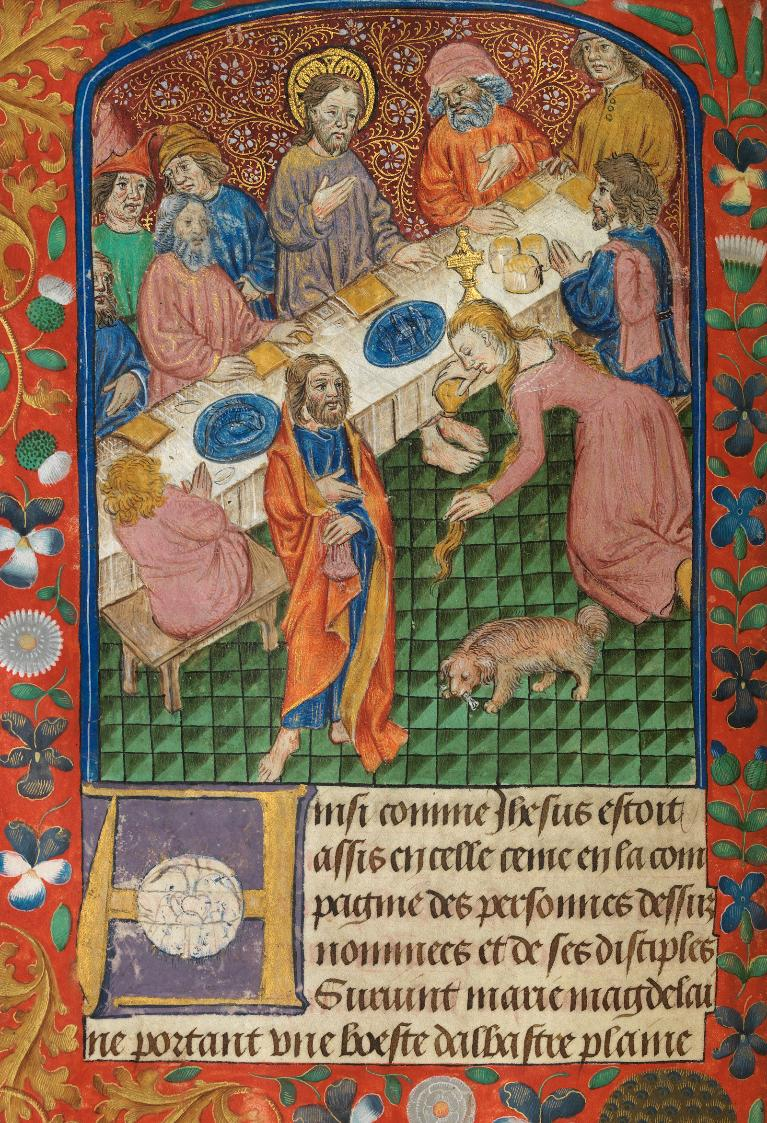 Ainsi comme Jhesus estoit
assis en celle cene en la com
pagnie des personnes dessus
nommees et de ses disciples
Suruint marie magdelai
ne portant vne boeste dalbastre plaine